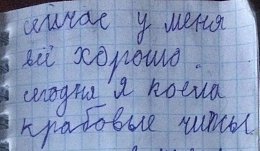 сейчас у меня
всё хорошо
сегодня я коела
крабовые чипсы